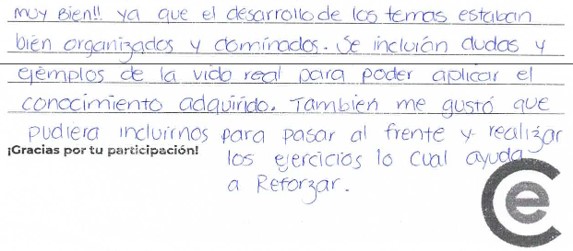 MUY BIEN!! ya que el desarrollo de los temas estaban
bien organizados y dominados. Se incluián dudas y
ejemplos de la vida real para poder aplicar el
conocimiento adquirido. También me gustó que
pudiera incluirnos para pasar al frente y realizar
¡Gracias por tu participación!
los ejercicios lo cual ayuda
a Reforzar.
Ce